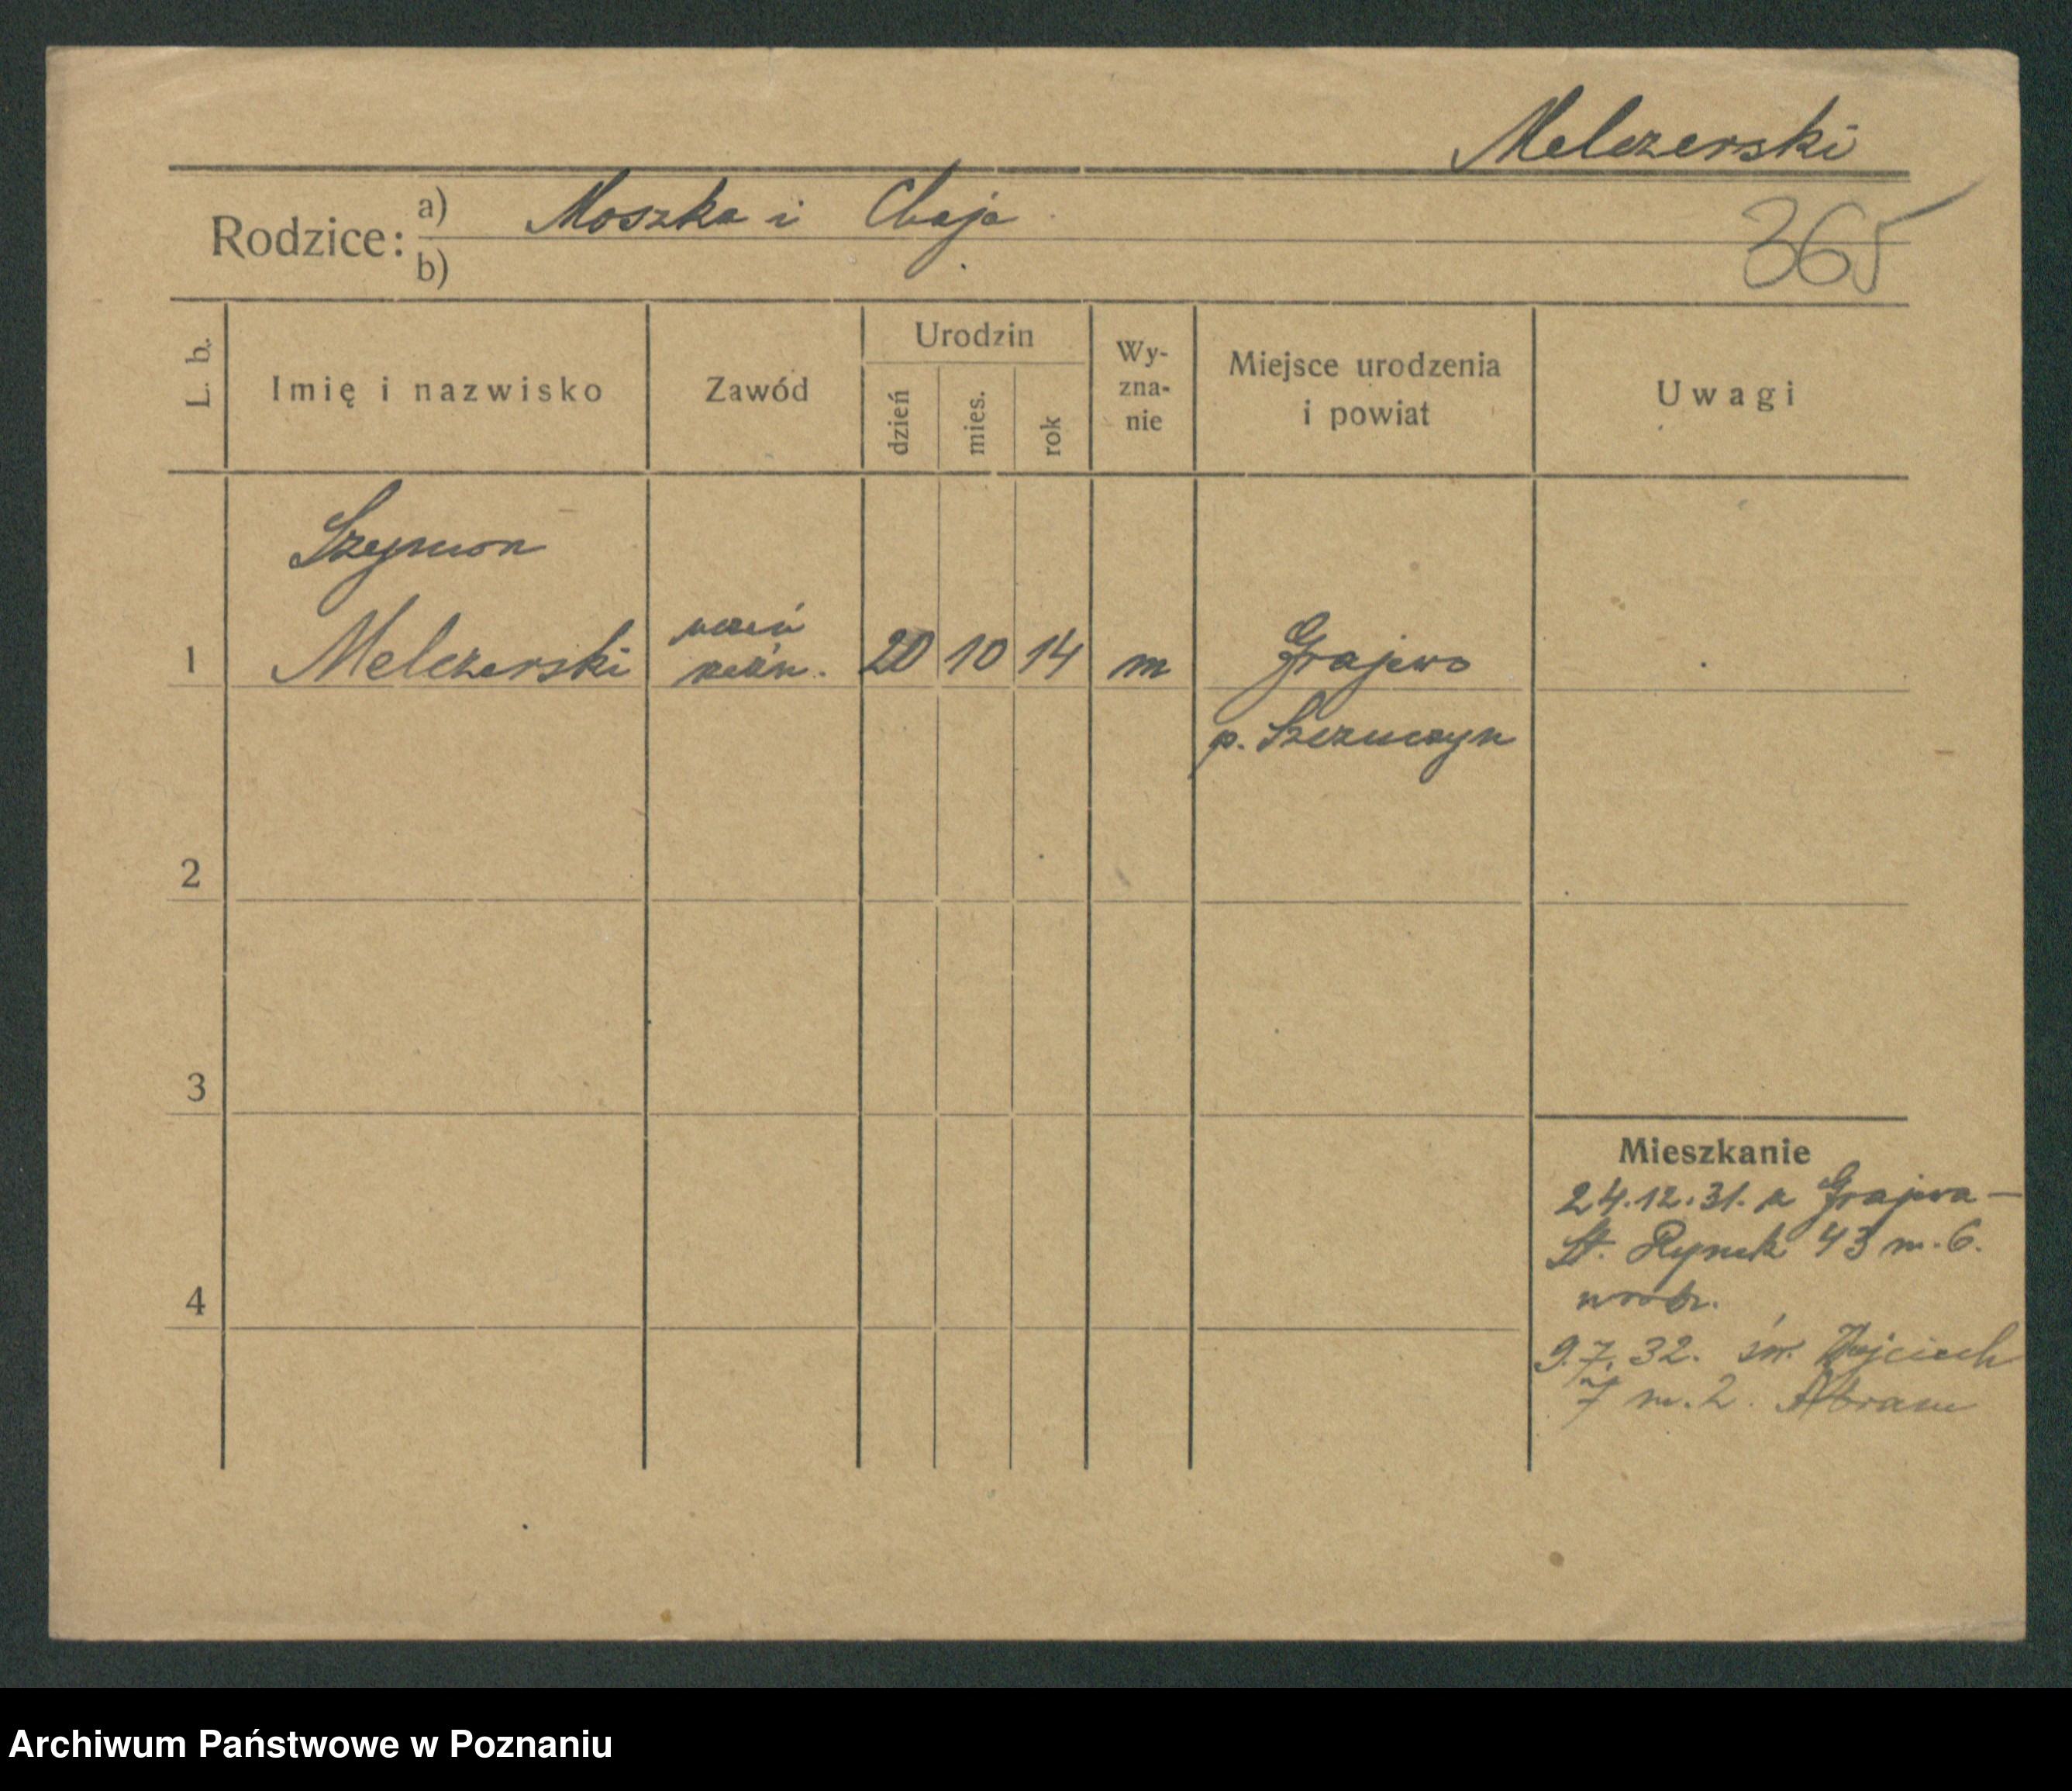 Melczerski
Rodzice: a) Moszka i Chaja
b)
365
L. b.
Imię i nazwisko
Zawód
Urodzin
dzień
mies.
rok
Wy-
zna-
nie
Miejsce urodzenia
i powiat
Uwagi
Szymon
1 Melczerski uczeń 20 10 14 m Grajewo
p. Szczuczyn
2
3
4
Mieszkanie
24.12.31. z Grajewa –
St. Rynek 43 m. 6.
9.7.32. św. Wojciech
7 m. 2. Abram
Archiwum Państwowe w Poznaniu